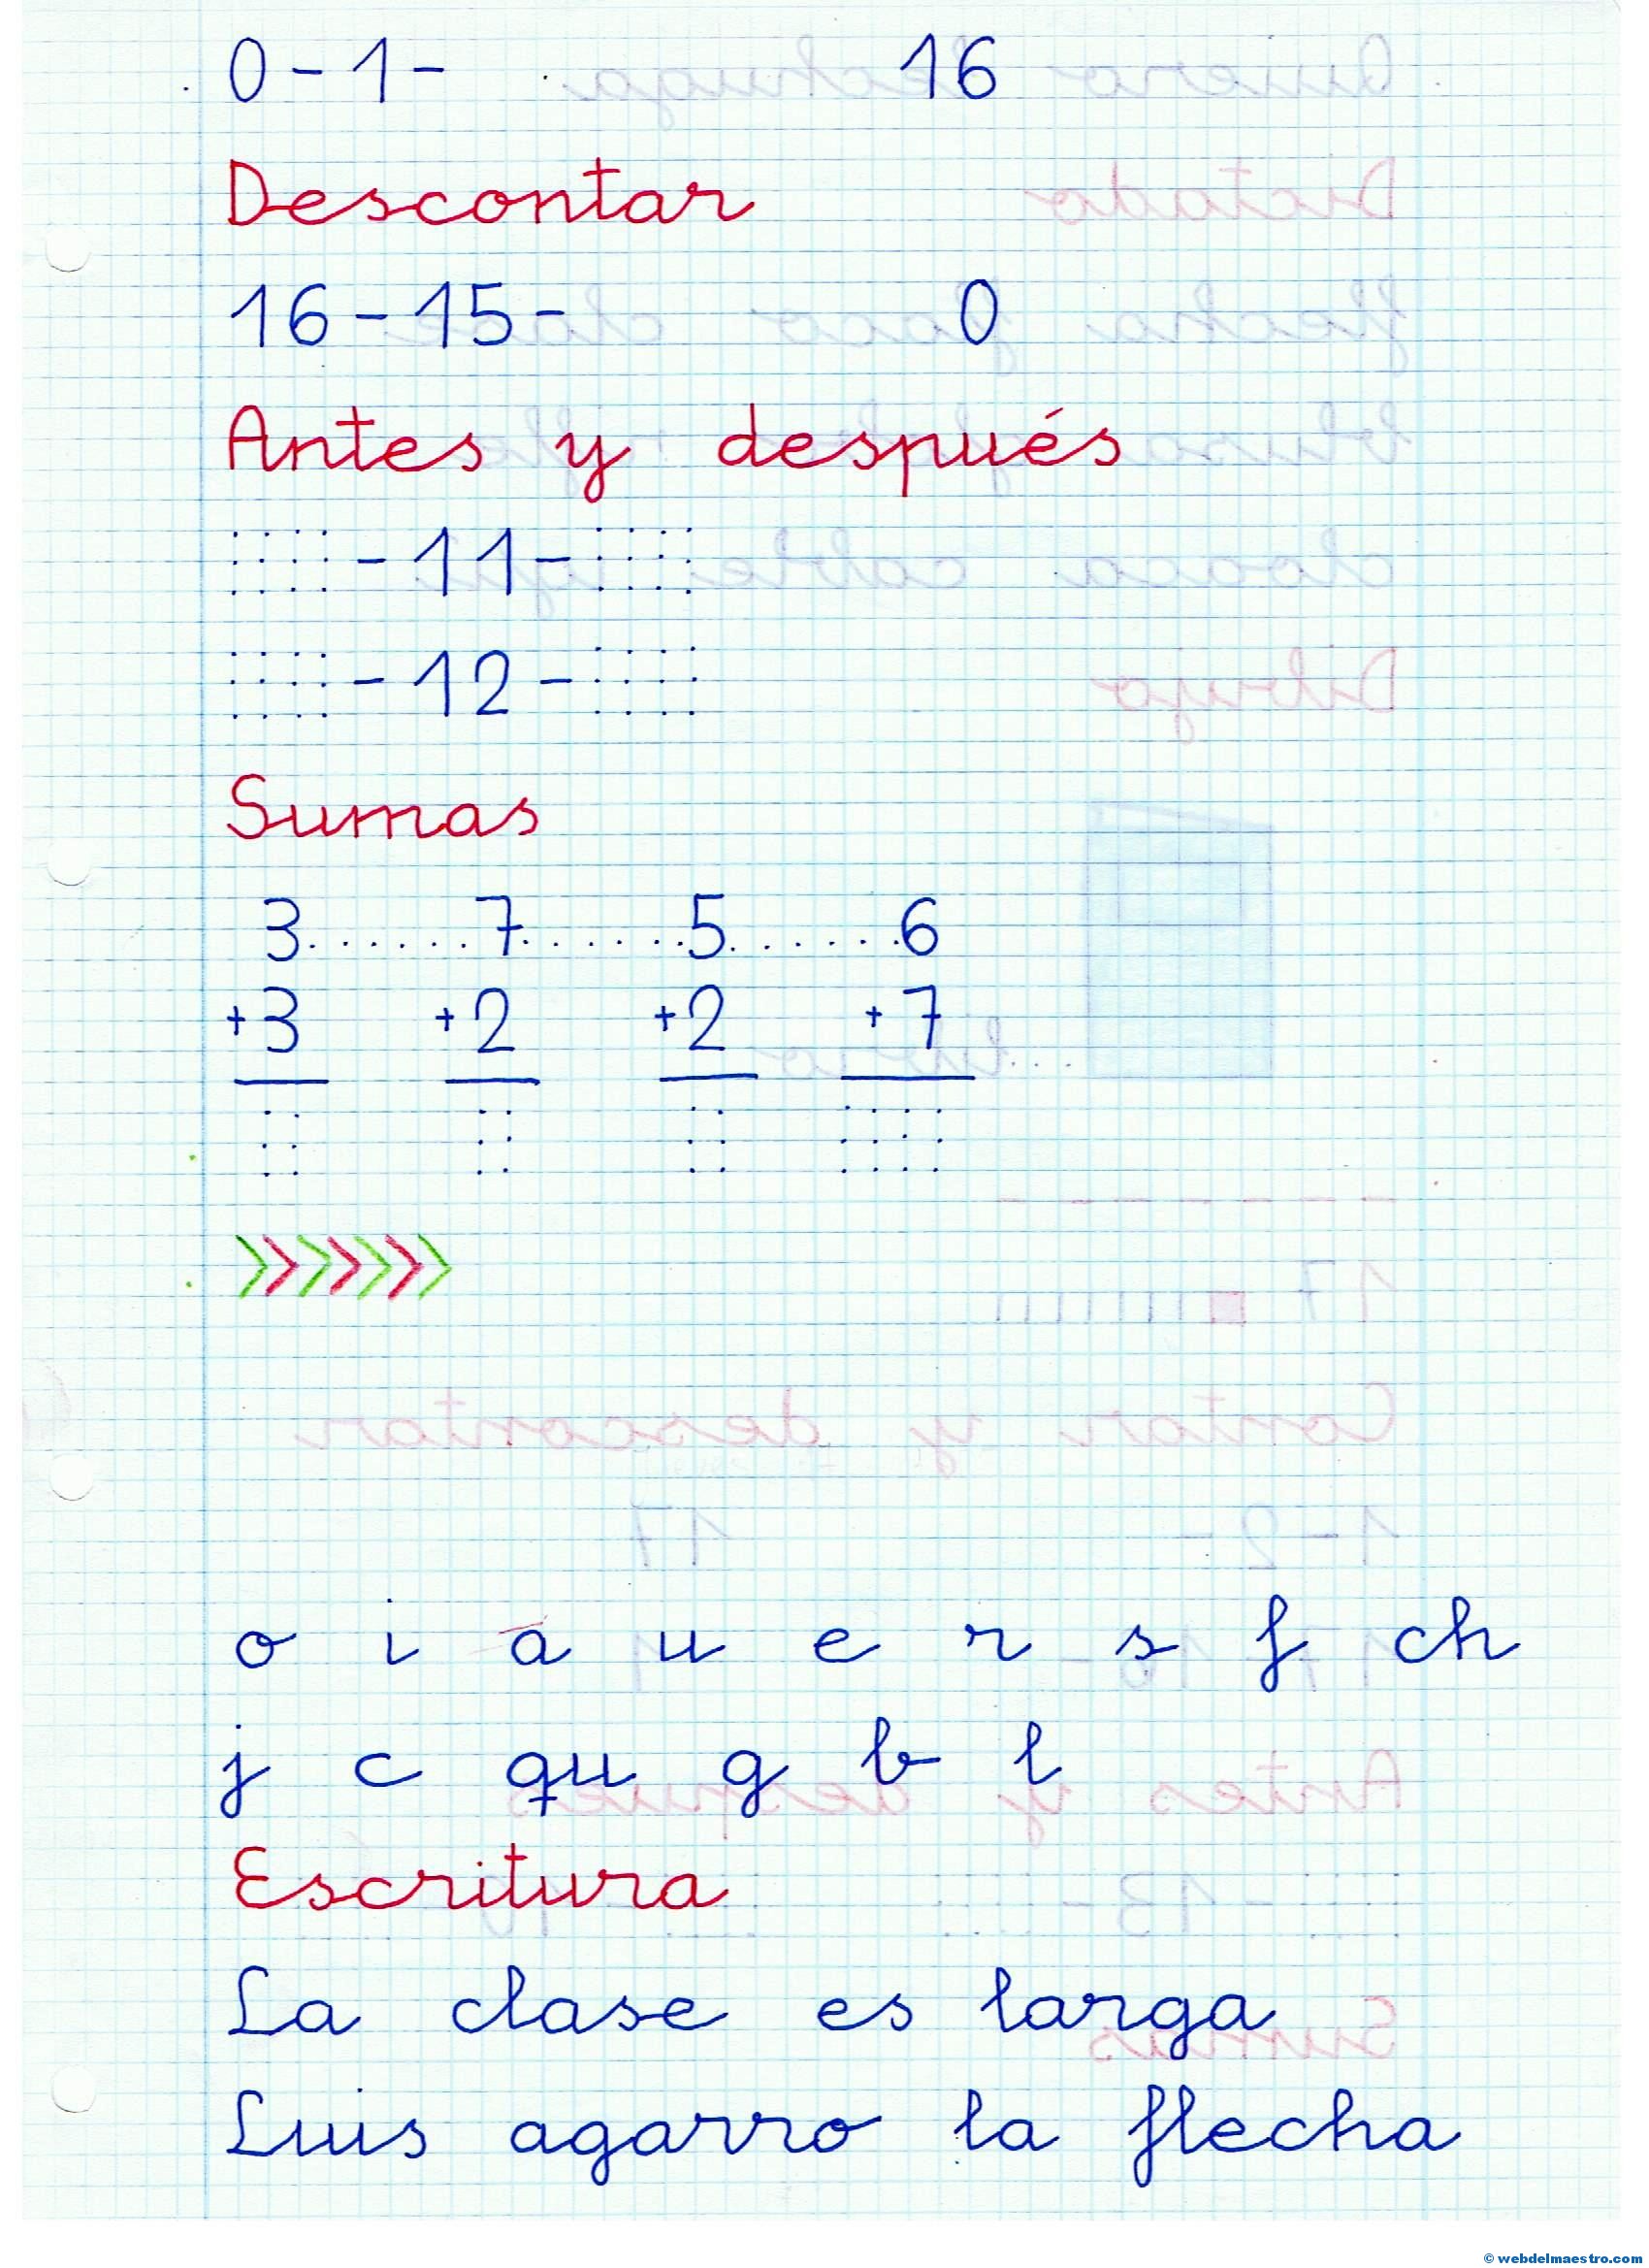 0-1- 16
Descontar
16-15- 0
Antes y después
-11-
-12-
Sumas
3.......7.......5.......6
+3 +2 +2 +7
o i a u e r s f ch
j c qu g b l
Escritura
La clase es larga
Luis agarro la flecha
© webdelmaestro.com